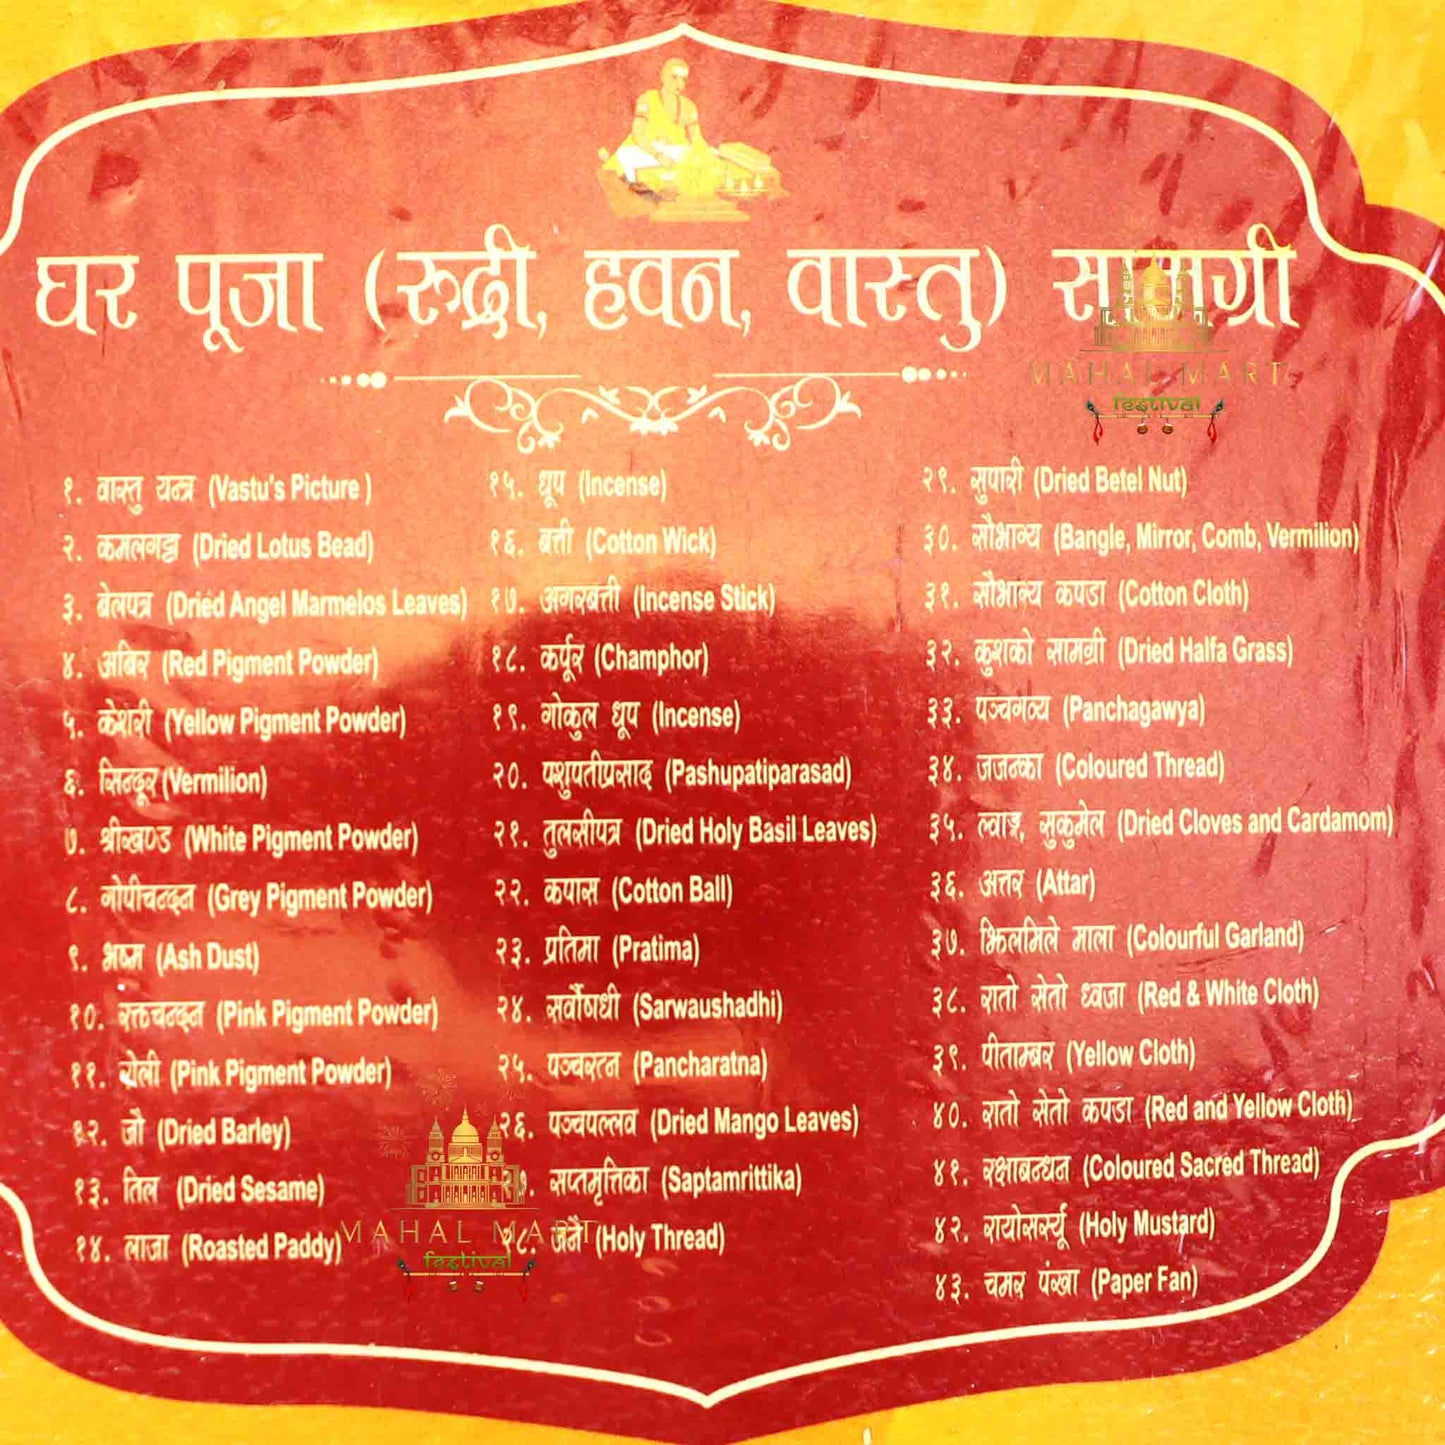 घर पूजा (रुद्री, हवन, वास्तु) सामग्री
MAHAL MART
festival
१. वास्तु यन्त्र (Vastu's Picture )
२. कमलगट्टा (Dried Lotus Bead)
३. बेलपत्र (Dried Angel Marmelos Leaves)
४. अबिर (Red Pigment Powder)
५. केशरी (Yellow Pigment Powder)
६. सिन्दूर (Vermilion)
७. श्रीखण्ड (White Pigment Powder)
८. गोपीचन्दन (Grey Pigment Powder)
९. भष्म (Ash Dust)
१०. रक्तचन्दन (Pink Pigment Powder)
११. रोली (Pink Pigment Powder)
१२. जौ (Dried Barley)
१३. तिल (Dried Sesame)
१४. लाजा (Roasted Paddy)
१५. धूप (Incense)
१६. बत्ती (Cotton Wick)
१७. अगरबत्ती (Incense Stick)
१८. कर्पूर (Champhor)
१९. गोकुल धूप (Incense)
२०. पशुपतीप्रसाद (Pashupatiparasad)
२१. तुलसीपत्र (Dried Holy Basil Leaves)
२२. कपास (Cotton Ball)
२३. प्रतिमा (Pratima)
२४. सर्वोषधी (Sarwaushadhi)
२५. पञ्चरत्न (Pancharatna)
२६. पञ्चपल्लव (Dried Mango Leaves)
२७. सप्तमृत्तिका (Saptamrittika)
२८. जनै (Holy Thread)
MAHAL MART
festival
२९. सुपारी (Dried Betel Nut)
३०. सौभाग्य (Bangle, Mirror, Comb, Vermilion)
३१. सौभाग्य कपडा (Cotton Cloth)
३२. कुशको सामग्री (Dried Halfa Grass)
३३. पञ्चगव्य (Panchagawya)
३४. जजन्का (Coloured Thread)
३५. ल्वाङ्ग, सुकुमेल (Dried Cloves and Cardamom)
३६. अत्तर (Attar)
३७. झिलमिले माला (Colourful Garland)
३८. रातो सेतो ध्वजा (Red & White Cloth)
३९. पीताम्बर (Yellow Cloth)
४०. रातो सेतो कपडा (Red and Yellow Cloth)
४१. रक्षाबन्धन (Coloured Sacred Thread)
४२. रायोसर्स्यू (Holy Mustard)
४३. चमर पंखा (Paper Fan)